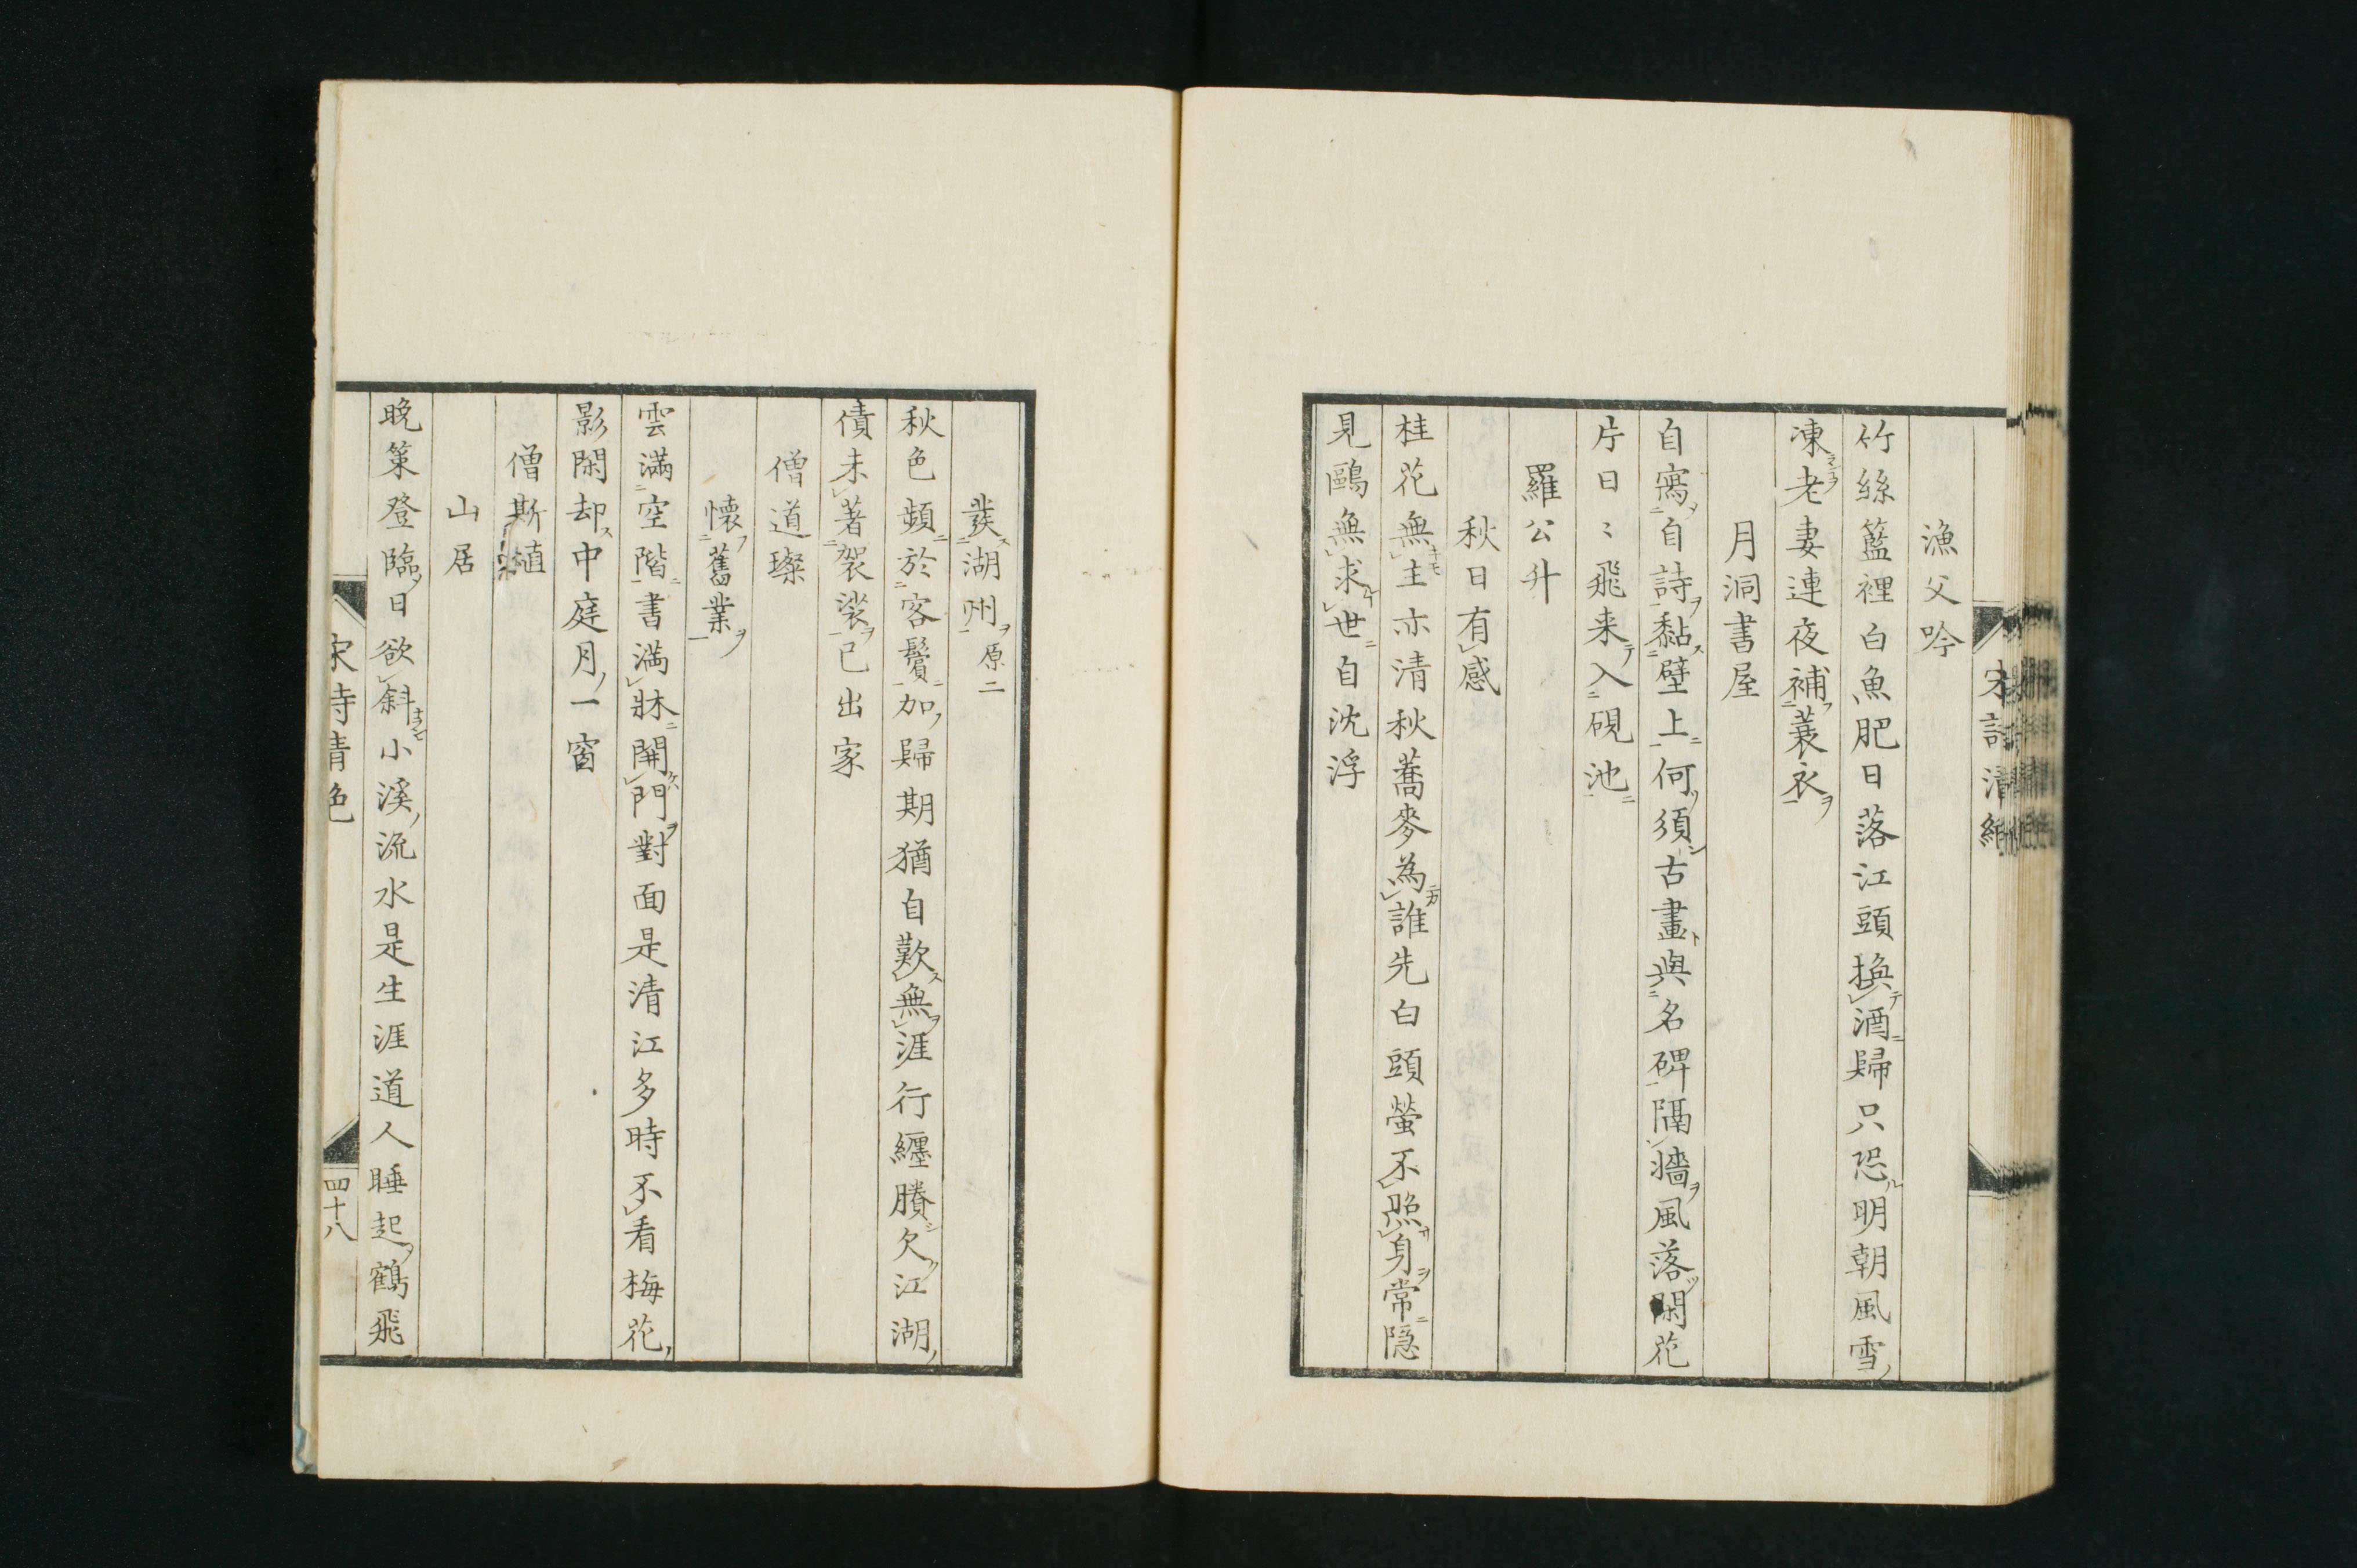 漁父吟
竹絲籃裡白魚肥日落江頭換酒歸只恐明朝風雪
凍老妻連夜補蓑衣
月洞書屋
自寫自詩黏壁上何須古畫與名碑隔墻風落閑花
片日〻飛来入硯池
羅公升
秋日有感
桂花無主亦清秋蕎麥為誰先白頭螢不照身常隠
見鷗無求世自沈浮
宋詩清絶
發湖州原二
秋色頻於客鬢加歸期猶自歎無涯行纏賸欠江湖
債未著袈裟已出家
僧道璨
懐舊業
雲滿空階書満牀開門對面是清江多時不看梅花
影閑却中庭月一窗
僧斯植
山居
晩策登臨日欲斜小溪流水是生涯道人睡起鶴飛
四十八